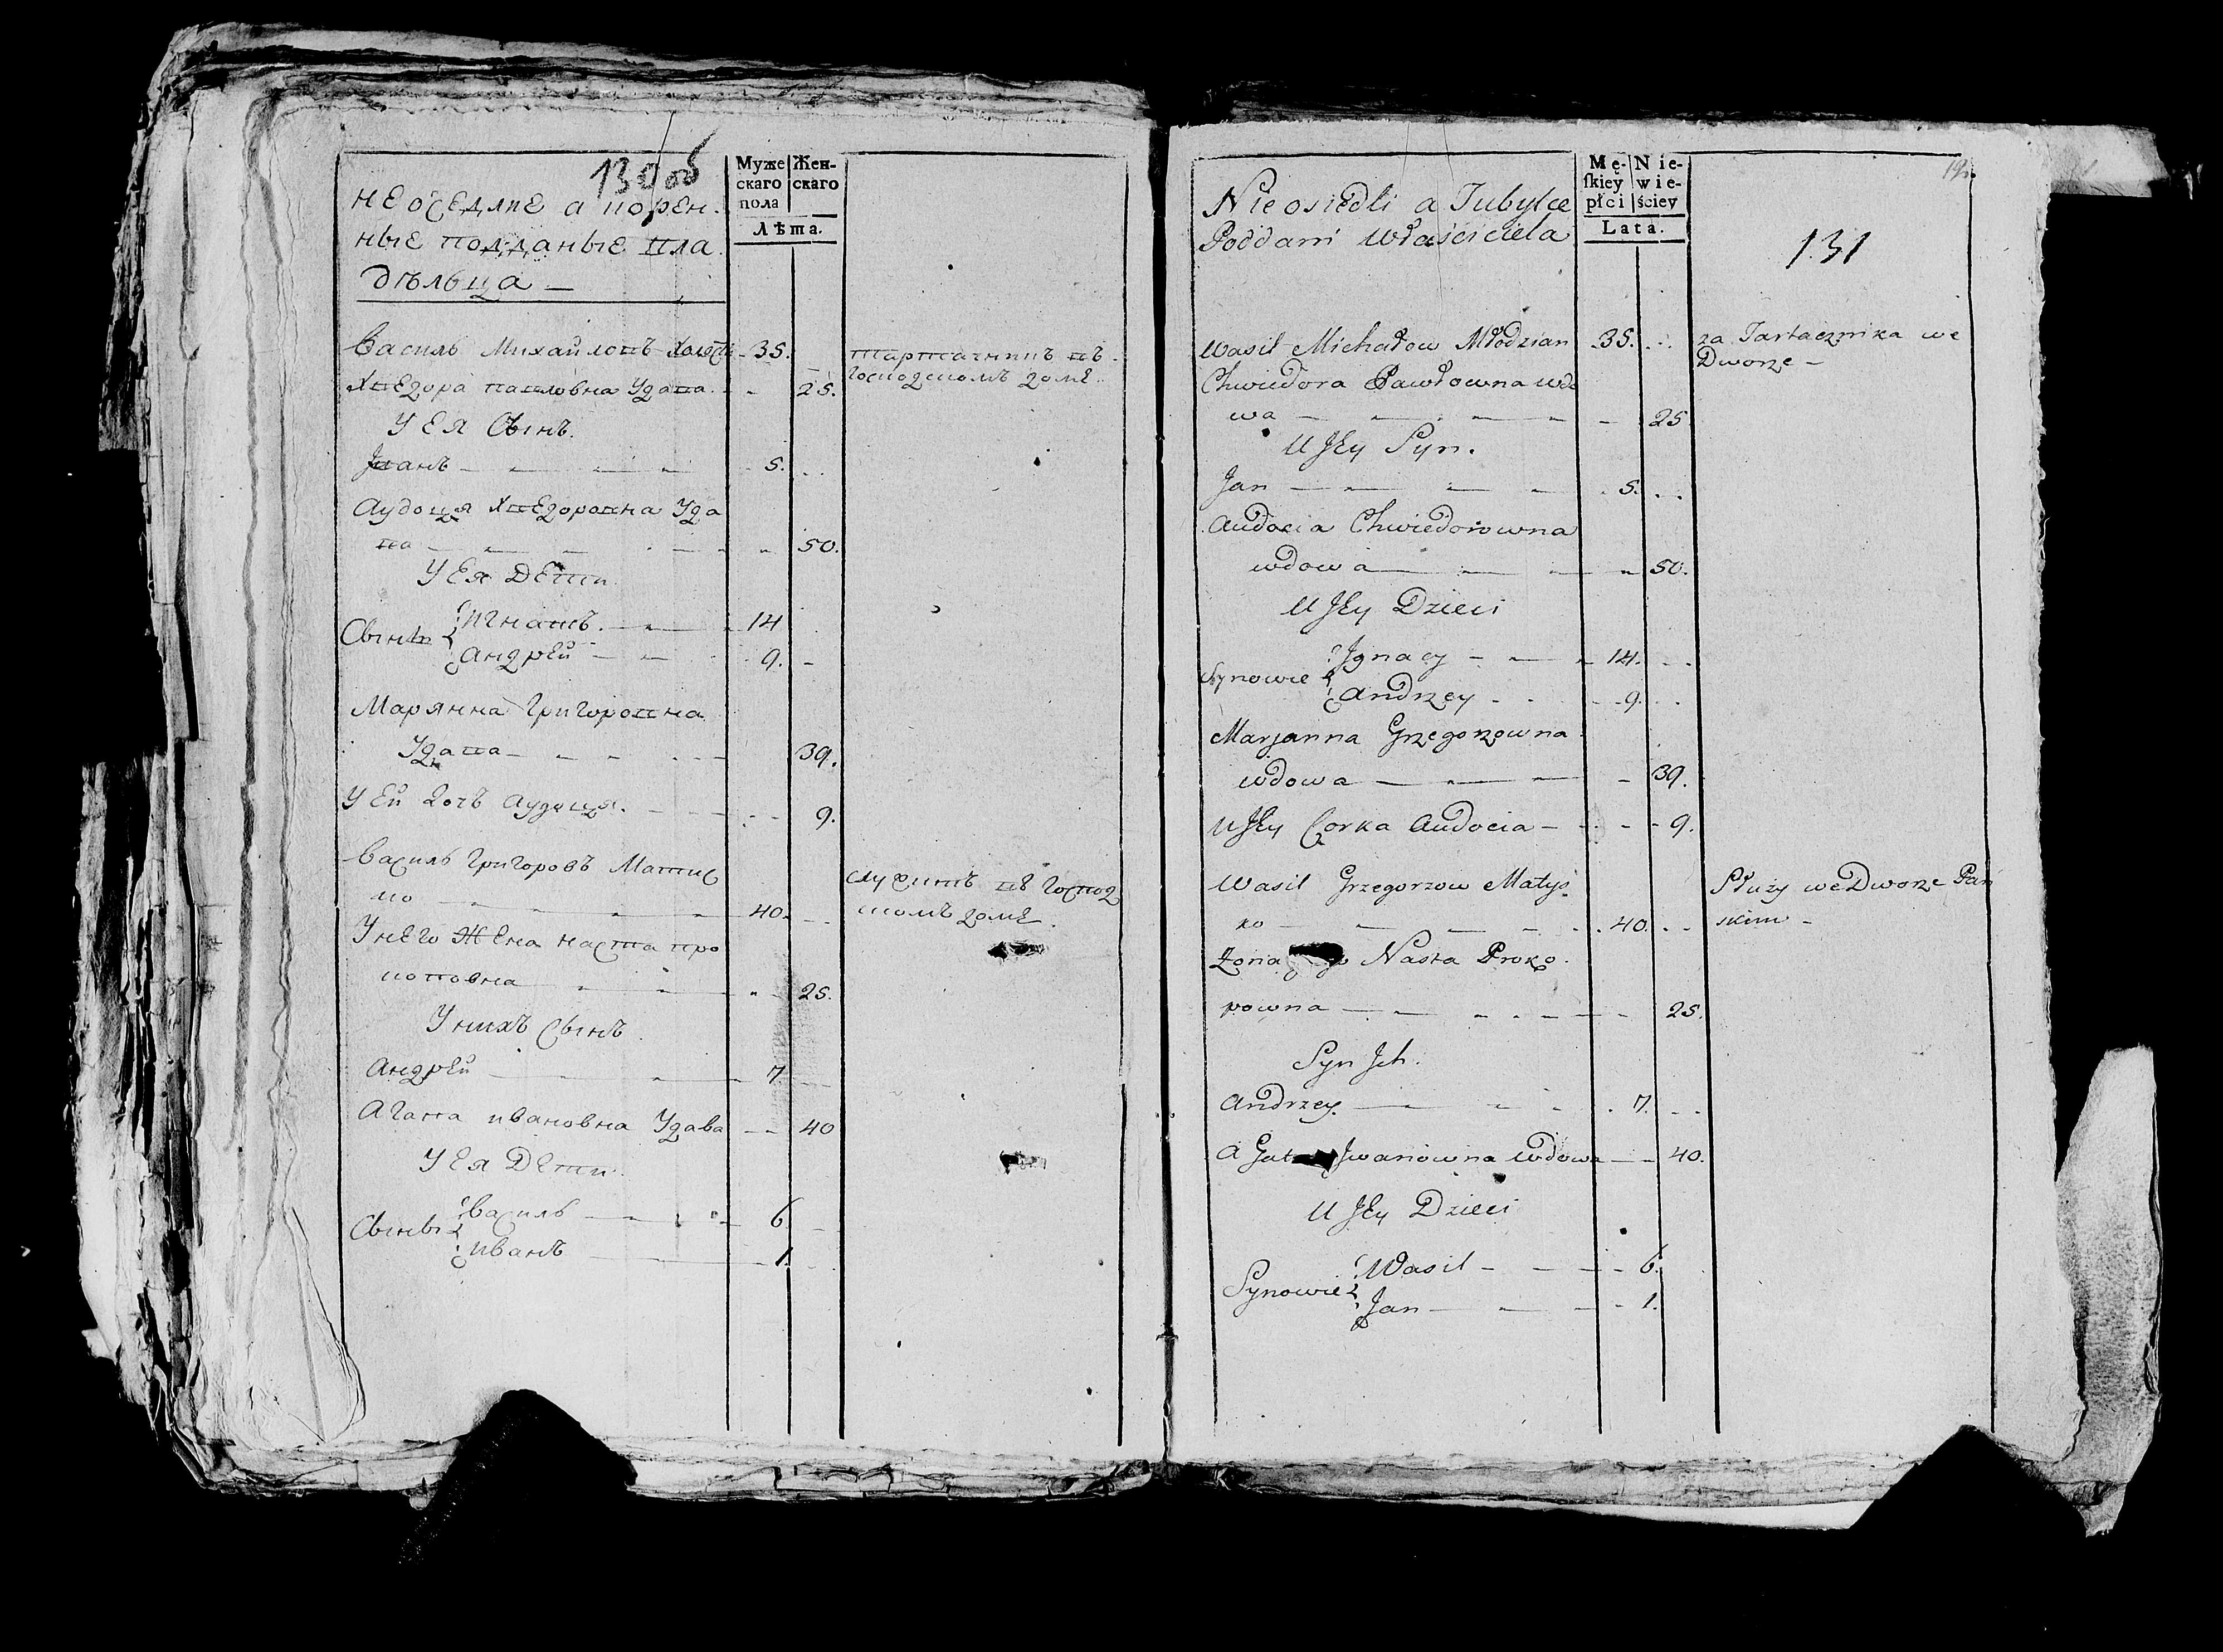 130об
Муже Жен-
скаго скаго
пола
Лѣта.
неоседлие а корен-
ные подданые вла
дѣльца —
Василь Михайловъ холости 35.
тартачникъ въ
господскомъ доме.
Хведора павловна Удава 25.
У ея Сынъ.
Іванъ 5.
Аудоция Хведоровна Уда
ва 50.
У ея Дети
Сыны Игнатъ. 14
Андрей 9.
Марянна Григоровна
Удава 39.
У ей дочъ Аудоция. 9.
Василь Григоровъ Матис
ко 40.
служитъ въ господ
скомъ доме.
У него Жена наста про
коповна 25.
У нихъ Сынъ.
Андрей 7.
Агата ивановна Удава 40
У ея Дети.
Сыны Василь 6.
иванъ 1.
Mę- Nie-
ſkiey wie-
płci ściey
Lata.
131
Nie osiedli a Tubylce
Poddani Właściciela
Wasil Michałow Młodzian 35.
za Tartacznika we
Dworze —
Chwiedora Pawłowna wdo
wa 25
U Jey Syn.
Jan 5.
Audocia Chwiedorowna
wdowa 50.
U Jey Dzieci
Synowie Jgnacy 14.
Andrzey 9.
Marjanna Grzegorzowna
wdowa 39.
U Jey Corka Audocia 9.
Wasil Grzegorzow Matys
ko 40.
Służy we Dworze Pań
skim —
Żona Nasta Proko
powna 25.
Syn Jch.
Andrzey 7.
Agat Jwanowna wdowa 40.
U Jey Dzieci
Synowie Wasil 6.
Jan 1.